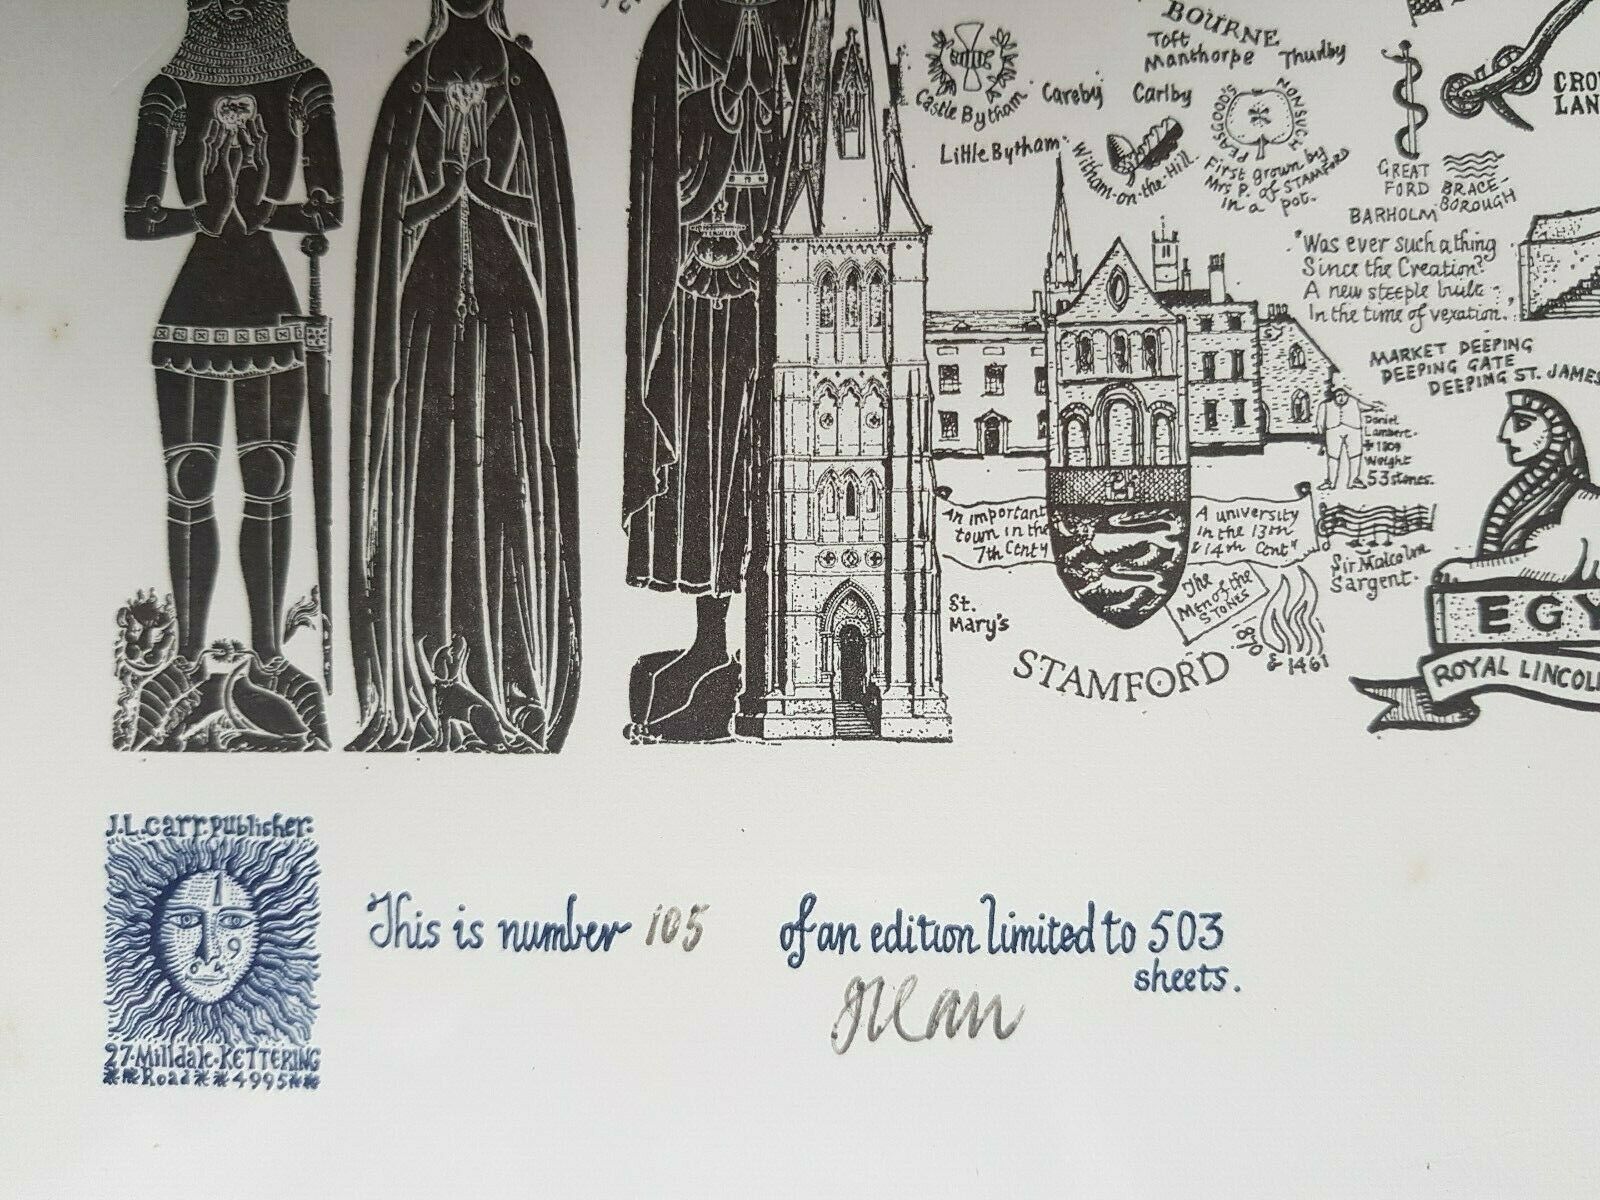 BOURNE
Toft
Manthorpe
Thurlby
Castle Bytham
Careby
Carlby
Little Bytham
Witham-on-the-Hill.
PEASGOOD'S
NONSUCH
First grown by
Mrs P. of STAMFORD
in a pot.
CRO
LAN
GREAT
FORD
BRACE-
BOROUGH
BARHOLM
"Was ever such a thing
Since the Creation?
A new steeple built
In the time of vexation."
MARKET DEEPING
DEEPING GATE
DEEPING ST. JAMES
Daniel
Lambert.
+1809
Weight
53 stones.
An important
town in the
7th Centy
A university
in the 13th
& 14th Centy
Sir Malcolm
Sargent.
The
Men of the
STONES
St.
Mary's
STAMFORD
& 1461
EGY
ROYAL LINCOL
J.L.Carr.Publisher:
1
9
27.Milldale.KETTERING
Road 4995
This is number 105 of an edition limited to 503
sheets.
JLCarr